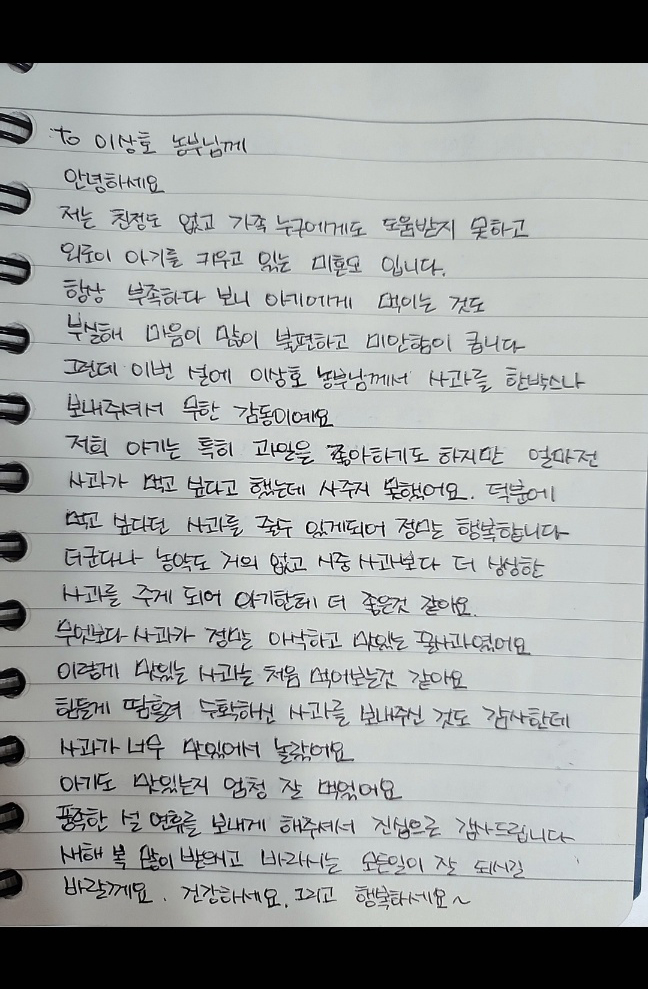 to 이상호 농부님께
안녕하세요
저는 친정도 없고 가족 누구에게도 도움받지 못하고
외로이 아기를 키우고 있는 미혼모 입니다.
항상 부족하다 보니 아기에게 먹이는 것도
부실해 마음이 많이 불편하고 미안함이 큽니다
그런데 이번 설에 이상호 농부님께서 사과를 한박스나
보내주셔서 무한 감동이예요
저희 아기는 특히 과일을 좋아하기도 하지만 얼마전
사과가 먹고 싶다고 했는데 사주지 못했어요. 덕분에
먹고 싶다던 사과를 줄수 있게되어 정말 행복합니다
더군다나 농약도 거의 없고 시중 사과보다 더 싱싱한
사과를 주게 되어 아기한테 더 좋은것 같아요.
무엇보다 사과가 정말 아삭하고 맛있는 꿀사과였어요
이렇게 맛있는 사과는 처음 먹어보는것 같아요
힘들게 땀흘려 수확하신 사과를 보내주신 것도 감사한데
사과가 너무 맛있어서 놀랐어요
아기도 맛있는지 엄청 잘 먹었어요
풍족한 설 연휴를 보내게 해주셔서 진심으로 감사드립니다
새해 복 많이 받으시고 바라시는 모든일이 잘 되시길
바랄께요. 건강하세요. 그리고 행복하세요~